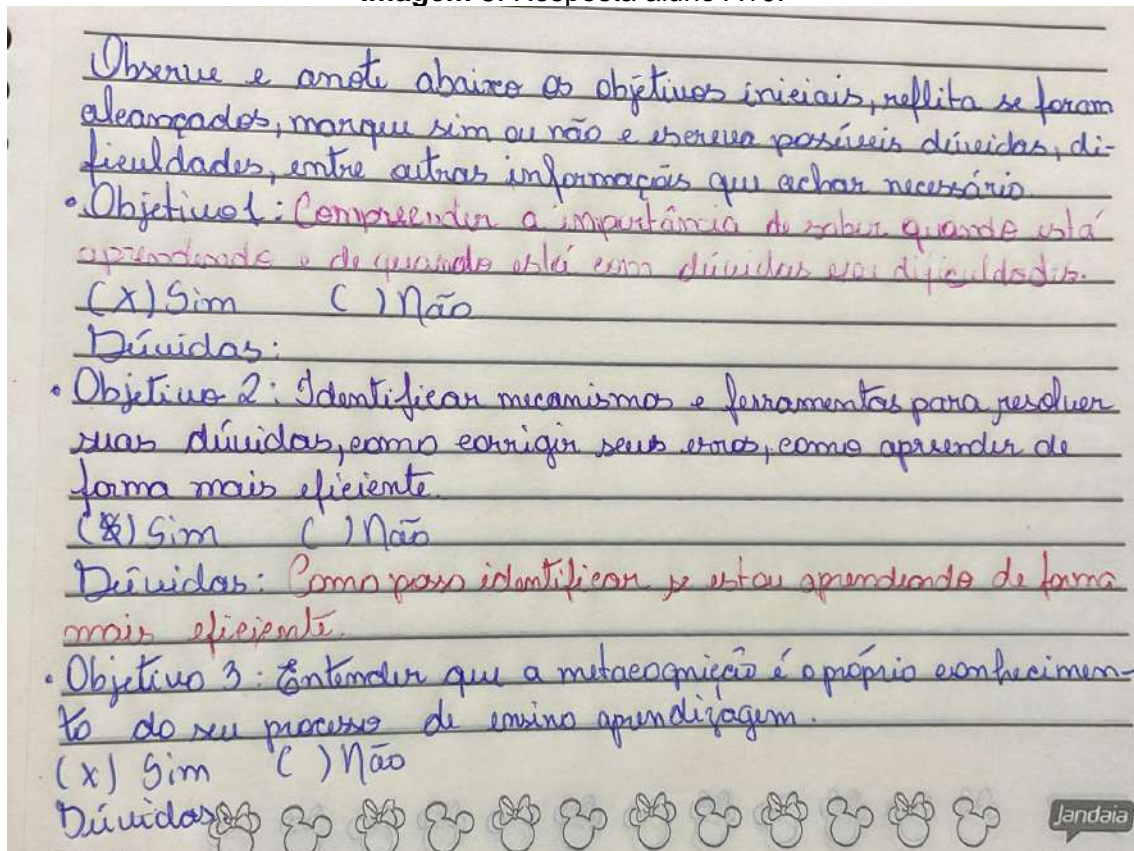 Imagem 3: Resposta aluno
Observe e anote abaixo os objetivos iniciais, reflita se foram
alcançados, marque sim ou não e escreva possíveis dúvidas, di-
ficuldades, entre outras informações que achar necessário.
• Objetivo 1: Compreender a importância de saber quando está
aprendendo e de quando está com dúvidas e/ou dificuldades.
(X) Sim ( ) Não
Dúvidas:
• Objetivo 2: Identificar mecanismos e ferramentas para resolver
suas dúvidas, como corrigir seus erros, como aprender de
forma mais eficiente.
(X) Sim ( ) Não
Dúvidas: Como posso identificar se estou aprendendo de forma
mais eficiente.
• Objetivo 3: Entender que a metacognição é o próprio conhecimen-
to do seu processo de ensino aprendizagem.
(x) Sim ( ) Não
Dúvidas
Jandaia